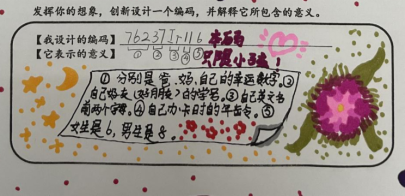 发挥你的想象，创新设计一个编码，并解释它所包含的意义。
【我设计的编码】76237Ir116
【它表示的意义】①②③④⑤ 只限小孩！
① 分别是爸、妈、自己的幸运数字，②
自己好友（好朋友）的学号。③自己英文书
前两个字母。④自己办卡时的年龄。⑤
女生是6，男生是8。